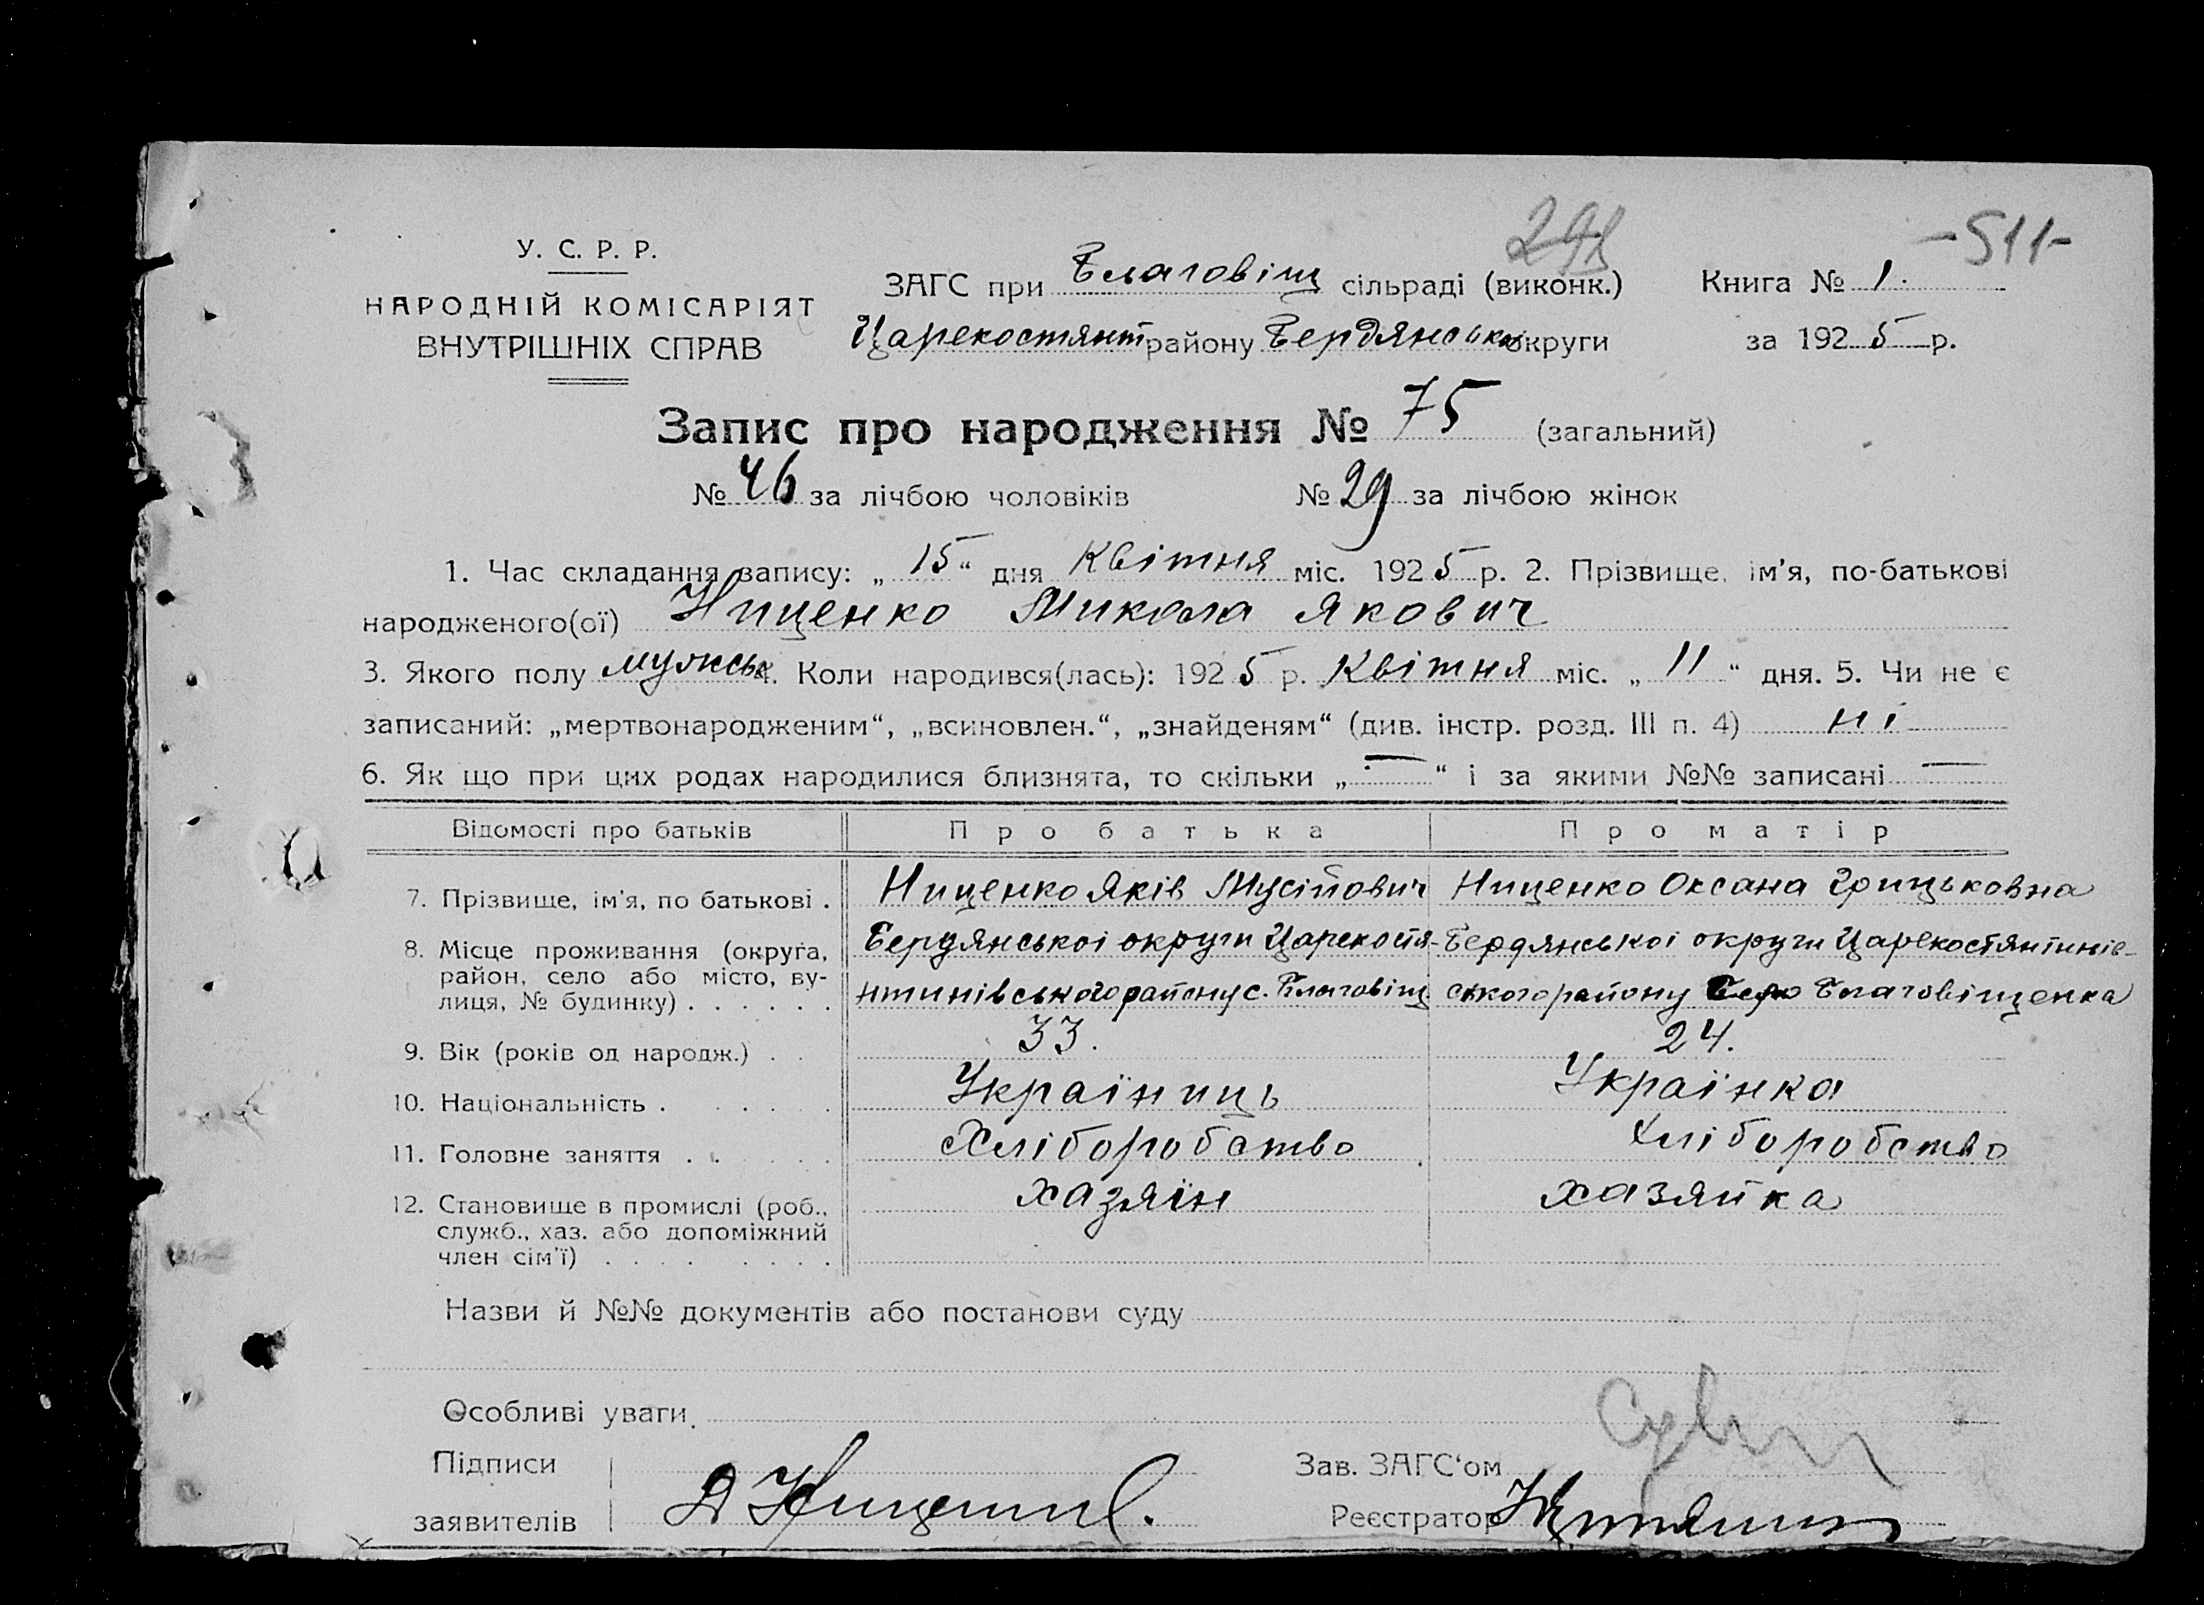 -511-
У. С. Р. Р.
НАРОДНІЙ КОМІСАРІЯТ
ВНУТРІШНІХ СПРАВ
ЗАГС при Благовіщ сільраді (виконк.) Книга № 1.
Царекостянт району Бердянськ округи за 1925 р.
Запис про народження № 75 (загальний)
№ 46 за лічбою чоловіків № 29 за лічбою жінок
1. Час складання запису: „15“ дня Квітня міс. 1925 р. 2. Прізвище, ім'я, по-батькові
народженого(ої) Ниценко Микола Якович
3. Якого полу мужськ 4. Коли народився(лась): 1925 р. Квітня міс. „11“ дня. 5. Чи не є
записаний: „мертвонародженим“, „всиновлен.“, „знайденям“ (див. інстр. розд. III п. 4) ні
6. Як що при цих родах народилися близнята, то скільки „—“ і за якими №№ записані —
Відомості про батьків Про батька Про матір
7. Прізвище, ім'я, по батькові . Ниценко Яків Мусійович Ниценко Оксана Грицьковна
8. Місце проживання (округа, район, село або місто, ву-лиця, № будинку) . . . . . .
Бердянської округи Царекостя-
нтинівського району с. Благовіщ
Бердянської округи Царекостянтинів-
ського району Благовіщенка
9. Вік (років од народж.) . . 33. 24.
10. Національність . . . . . Україниць Українка
11. Головне заняття . . . . . Хліборобство Хліборобство
12. Становище в промислі (роб., служб., хаз. або допоміжний член сім'ї) . . . . . . . . хазяїн хазяйка
Назви й №№ документів або постанови суду
Особливі уваги.
Підписи
заявителів Я Ниценко.
Зав. ЗАГС'ом
Реєстратор